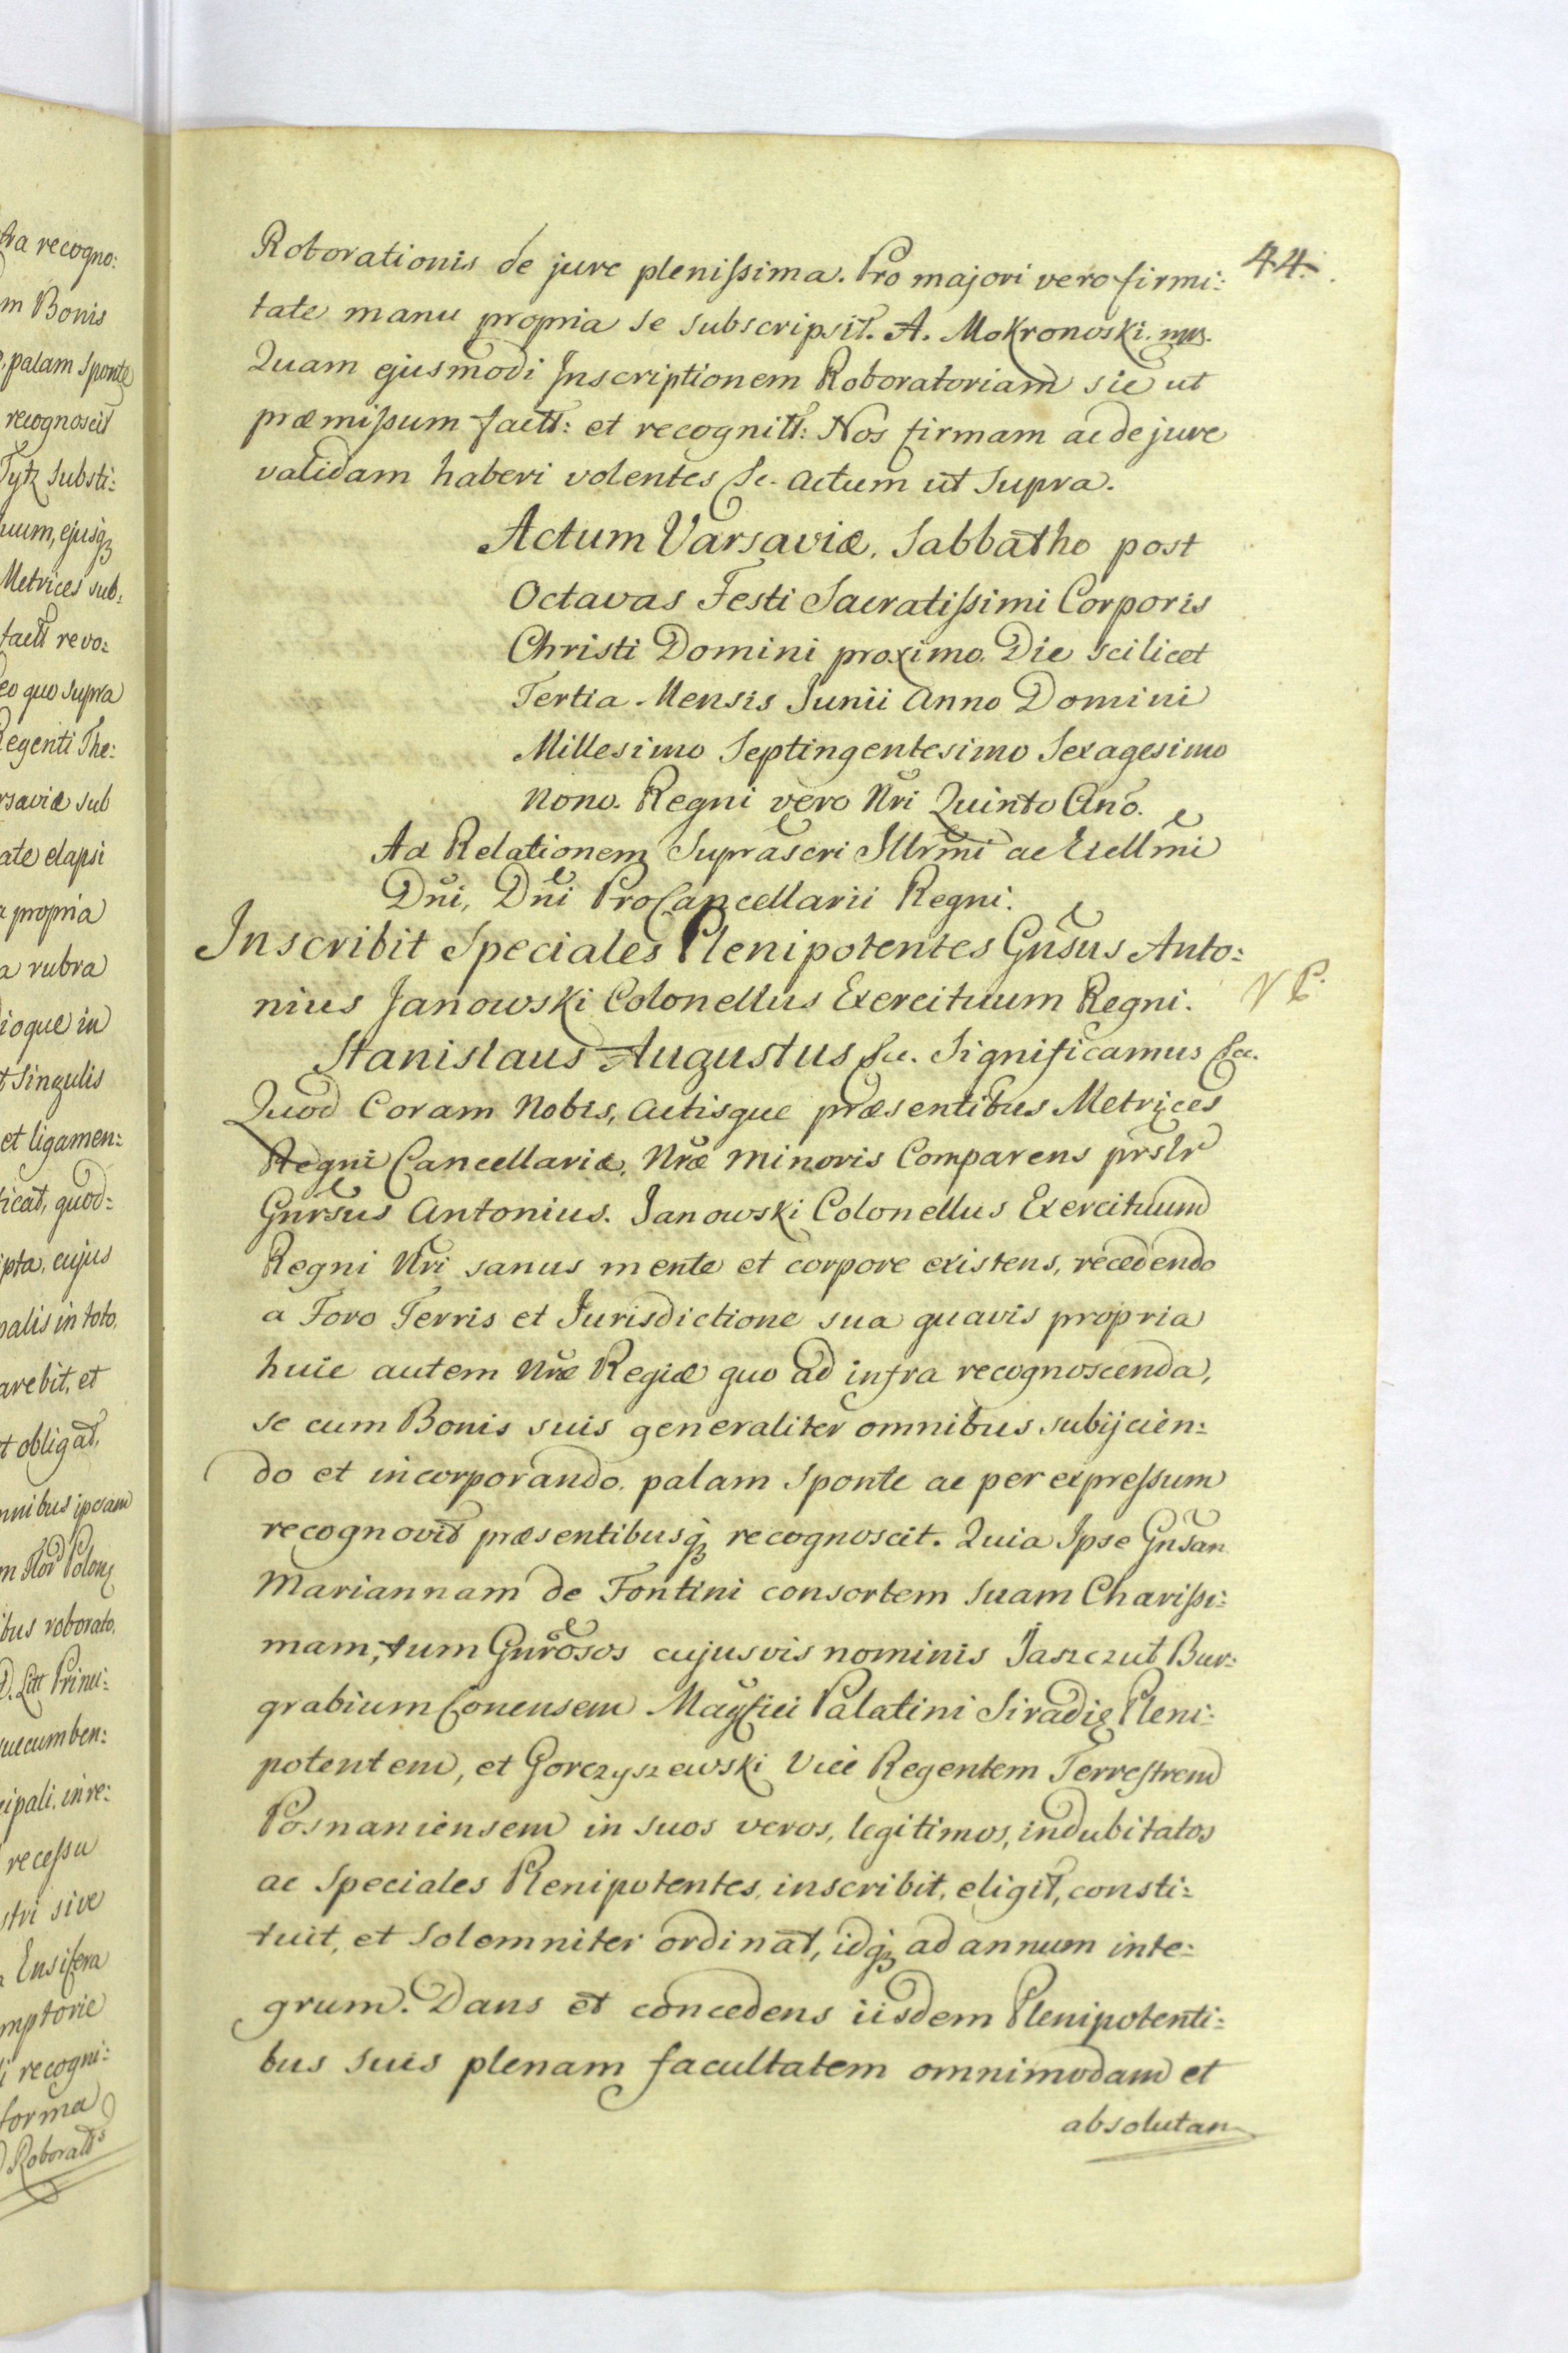 44.
Roborationis de jure plenissima. Pro majori vero firmi:
tate manu propria se subscripsit. A. Mokronoski. mp.
Quam ejusmodi Inscriptionem Roboratoriam sic ut
præmissum factt: et recognitt: Nos firmam ac de jure
validam haberi volentes &c. actum ut Supra.
Actum Varsaviæ, Sabbatho post
Octavas Festi Sacratissimi Corporis
Christi Domini proximo. Die scilicet
Tertia Mensis Junii Anno Domini
Millesimo Septingentesimo Sexagesimo
Nono. Regni vero Nri Quinto Ano.
Ad Relationem Suprascri Illrmi ac Excellmi
Dni, Dni ProCancellarii Regni.
Inscribit Speciales Plenipotentes Gnsus Anto:
nius Janowski Colonellus Exercituum Regni.
Stanislaus Augustus &c. Significamus &c.
Quod Coram Nobis, Actisque præsentibus Metrices
Regni Cancellariæ, Nræ Minoris Comparens prslr
Gnrsus Antonius. Janowski Colonellus Exercituum
Regni Nri sanus mente et corpore existens, recedendo
a Foro Terris et Jurisdictione sua quavis propria
huic autem Nræ Regiæ quo ad infra recognoscenda,
se cum Bonis suis generaliter omnibus subijcien:
do et incorporando, palam Sponte ac per expressum
recognovit præsentibusq; recognoscit. Quia Ipse Gnsan
Mariannam de Fontini consortem Suam Charissi:
mam, tum Gnrosos cujusvis nominis Jaszczut Bur:
grabium Conensem Magfici Palatini Siradię Pleni:
potentem, et Gorczyszewski Vice Regentem Terrestrem
Posnaniensem in suos veros, legitimos, indubitatos
ac Speciales Plenipotentes, inscribit, eligit, consti:
tuit, et Solemniter ordinat, idq; ad annum inte:
grum. Dans et concedens iisdem Plenipotenti:
bus suis plenam facultatem omnimodam et
absolutam